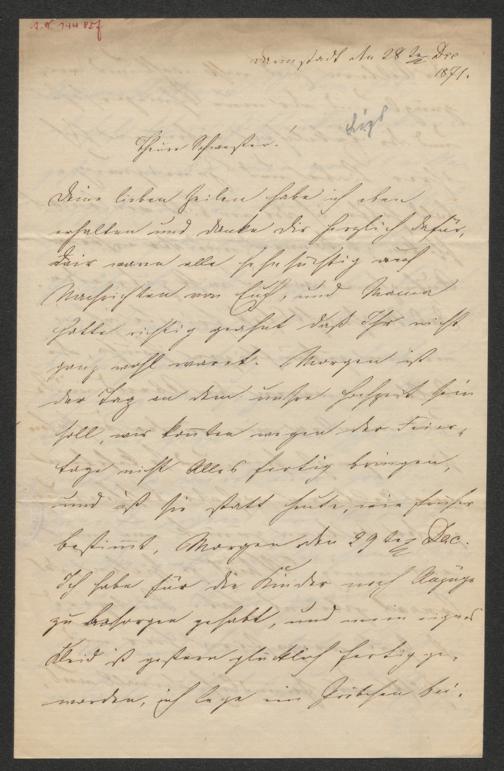 Darmstadt den 28 ten Dec
1871.
Theure Schwester!
Deine lieben Zeilen habe ich eben
erhalten und danke Dir herzlich dafür,
wir waren alle sehnsüchtig auf
Nachrichten von Euch, und Mama
hatte richtig geahnt daß Ihr nicht
ganz wohl waret. Morgen ist
der Tag an dem unsre Hochzeit sein
soll, wir konnten wegen der Feier-
tage nicht Alles fertig bringen,
und ist sie statt heute, wie früher
bestimmt, Morgen den 29 ten Dec.
Ich habe für die Kinder noch Anzüge
zu besorgen gehabt, und mein eignes
Kleid ist gestern glücklich fertig ge-
worden, ich lege ein Pröbchen bei.